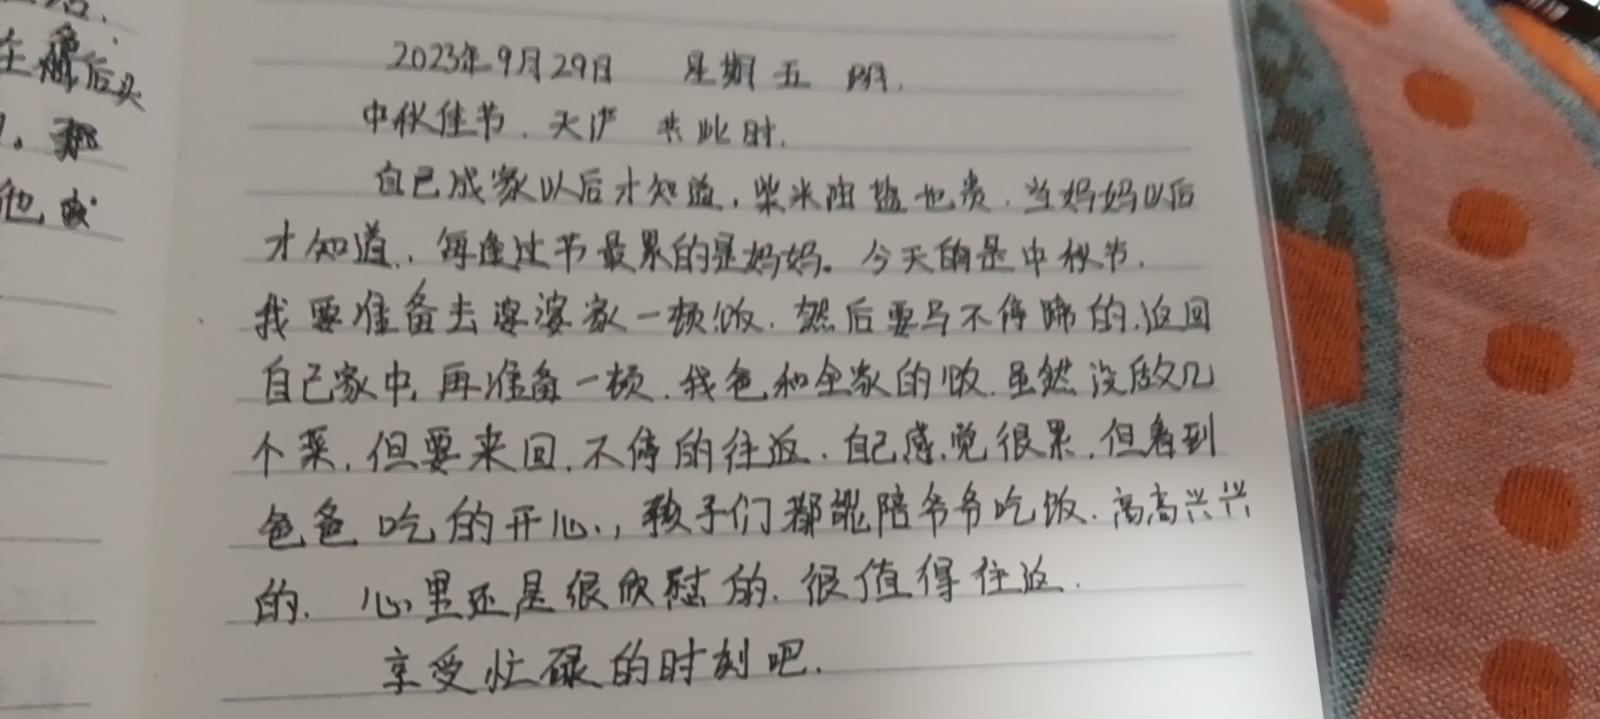 后头
他
2023年9月29日 星期五 阴.
中秋佳节. 天涯 共此时.
自己成家以后才知道, 柴米油盐也贵. 当妈妈以后
才知道, 每逢过节最累的是妈妈。今天的是中秋节.
我要准备去婆婆家一顿饭. 然后要马不停蹄的返回
自己家中, 再准备一顿. 我爸和全家的饭. 虽然没做几
个菜, 但要来回, 不停的往返. 自己感觉很累, 但看到
爸爸 吃的开心, 孩子们都能陪爷爷吃饭. 高高兴兴
的. 心里还是很欣慰的. 很值得往返.
享受忙碌的时刻吧.